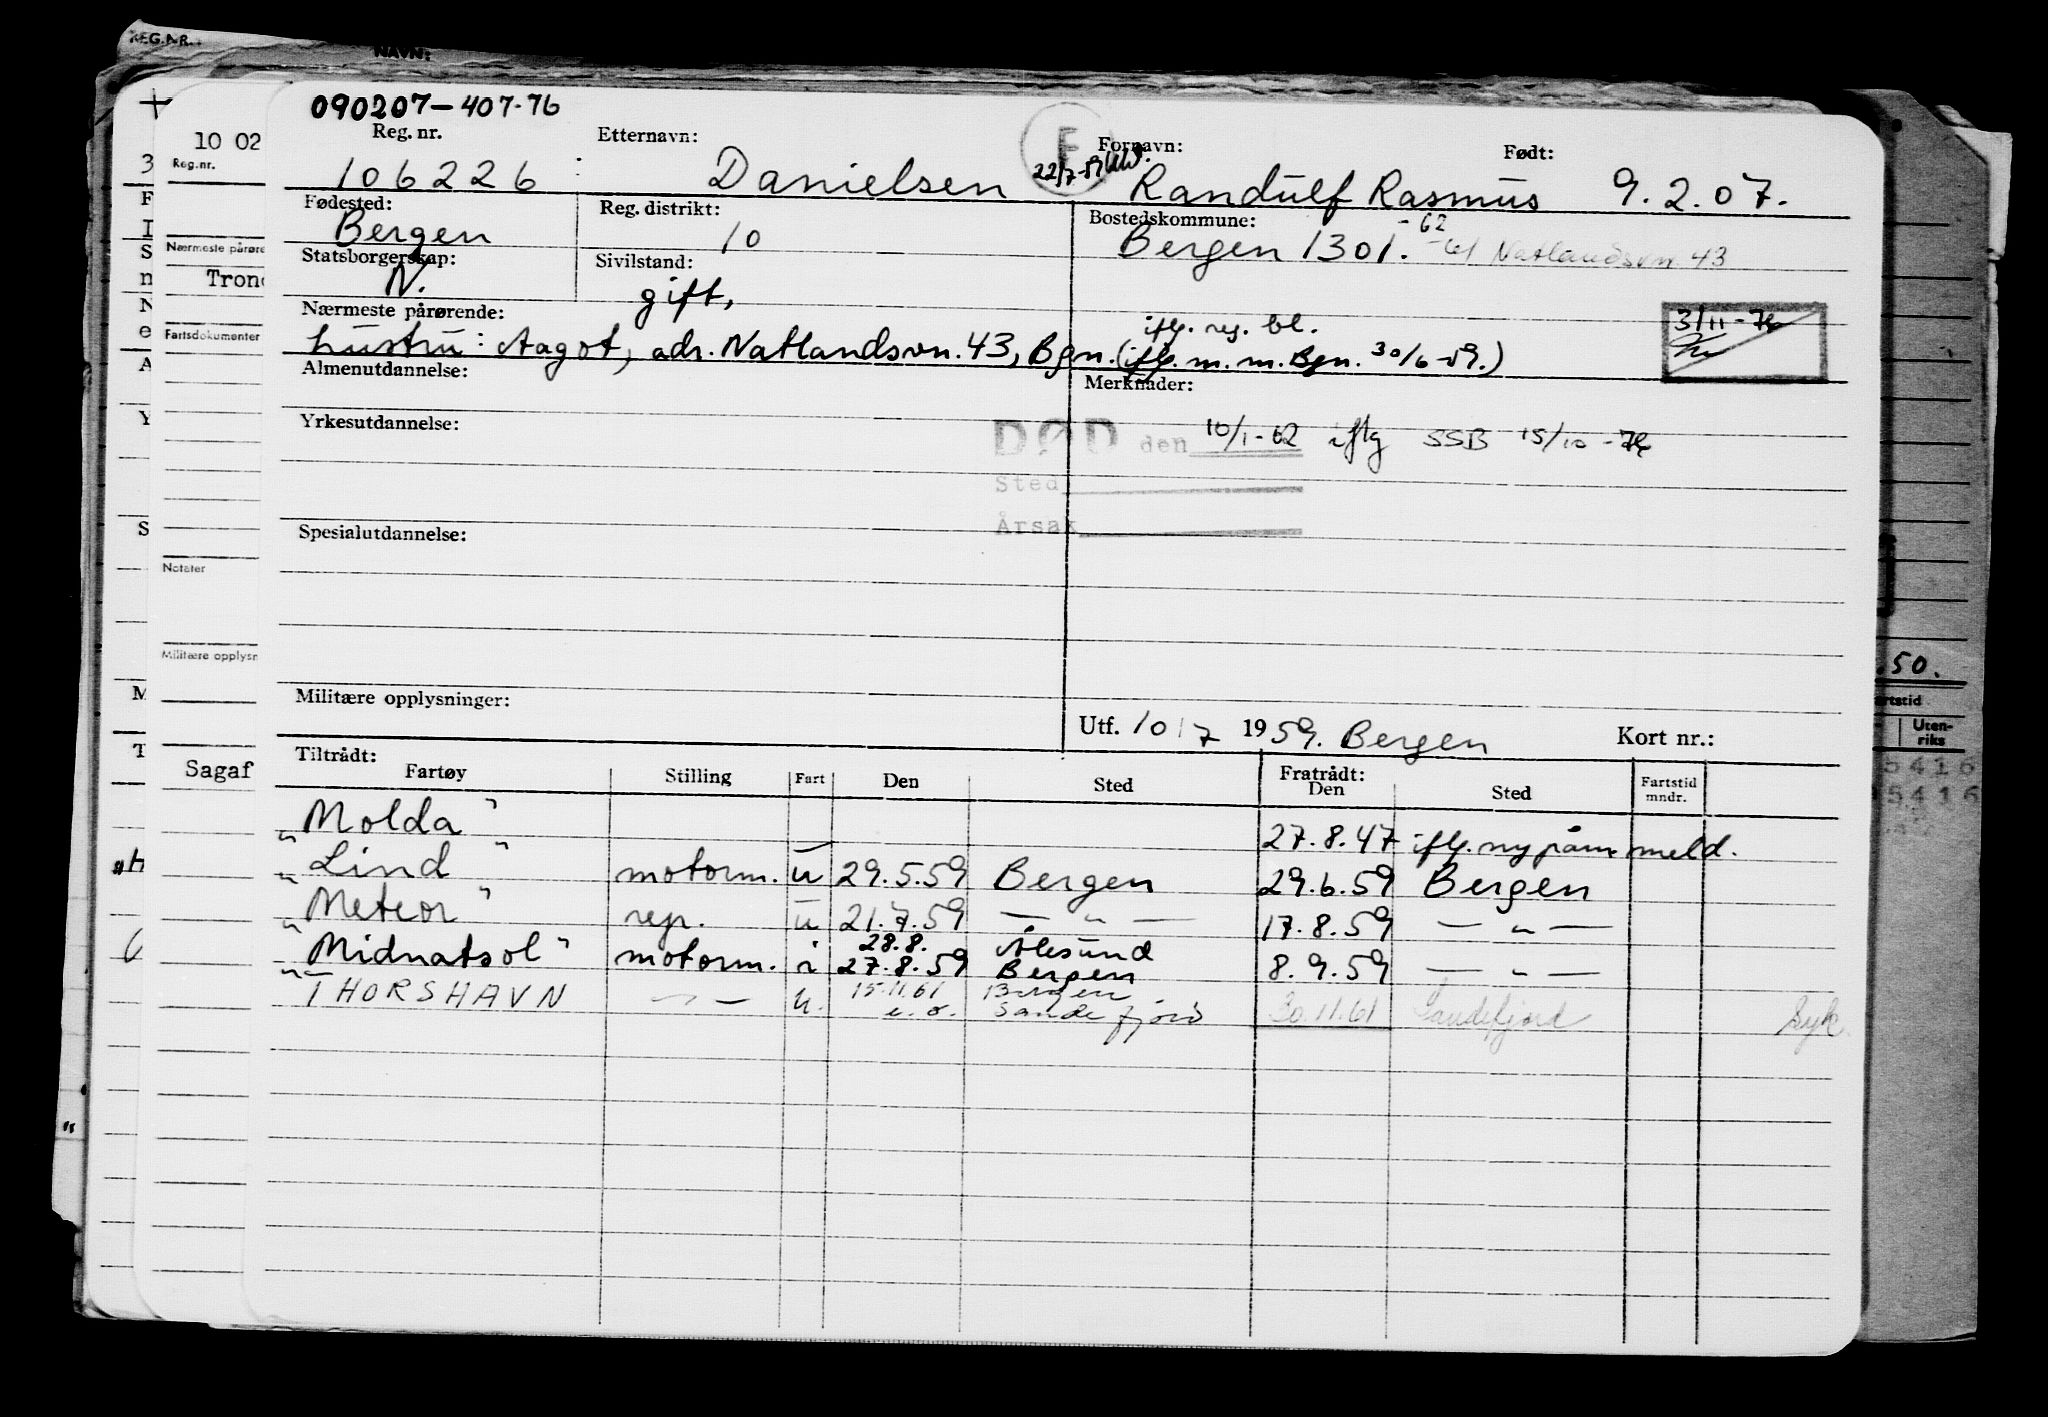 REG.NR.:
NAVN:
090207-407-76
Reg. nr. Etternavn: Fornavn: Født:
106226 Danielsen 22/7-59 Randulf Rasmus 9.2.07.
F
Fødested: Reg. distrikt: Bostedskommune:
Bergen 10 Bergen 1301. -62 -61 Natlandsvn. 43
Statsborgerskap: Sivilstand:
N. gift,
Nærmeste pårørende:
iflg. reg. bl.
hustru: Aagot, adr. Natlandsvn. 43, Bgn. (iflg. m. m. Bgn. 30/6-59.)
3/11-76
Almenutdannelse: Merknader:
Yrkesutdannelse:
DØD den 10/1-62 iflg SSB 15/10-76
Sted
Årsak
Spesialutdannelse:
Militære opplysninger:
Utf. 10/7 1959. Bergen Kort nr.:
Tiltrådt: Fratrådt:
Fartøy Stilling Fart Den Sted Den Sted Fartstid mndr.
"Molda" 27.8.47 iflg. ny påm. meld.
"Lind" motorm. u 29.5.59 Bergen 29.6.59 Bergen
"Meteor" rep. u 21.7.59 — " — 17.8.59 — " —
28.8. Ålesund
"Midnatsol" motorm. i 27.8.59 Bergen 8.9.59 — " —
15.11.61 Bergen
"THORSHAVN — " — u. e.o. Sandefjord 30.11.61 Sandefjord Syk.
10 02
Reg.nr.
Nærmeste pårøre
Trond
Fartsdokumenter
Notater
Militære opplysn
Sagaf
3
F
I
S
n
N
e
A
Y
S
M
T
"H
.50.
rtstid
Uten-
riks
5416
5416